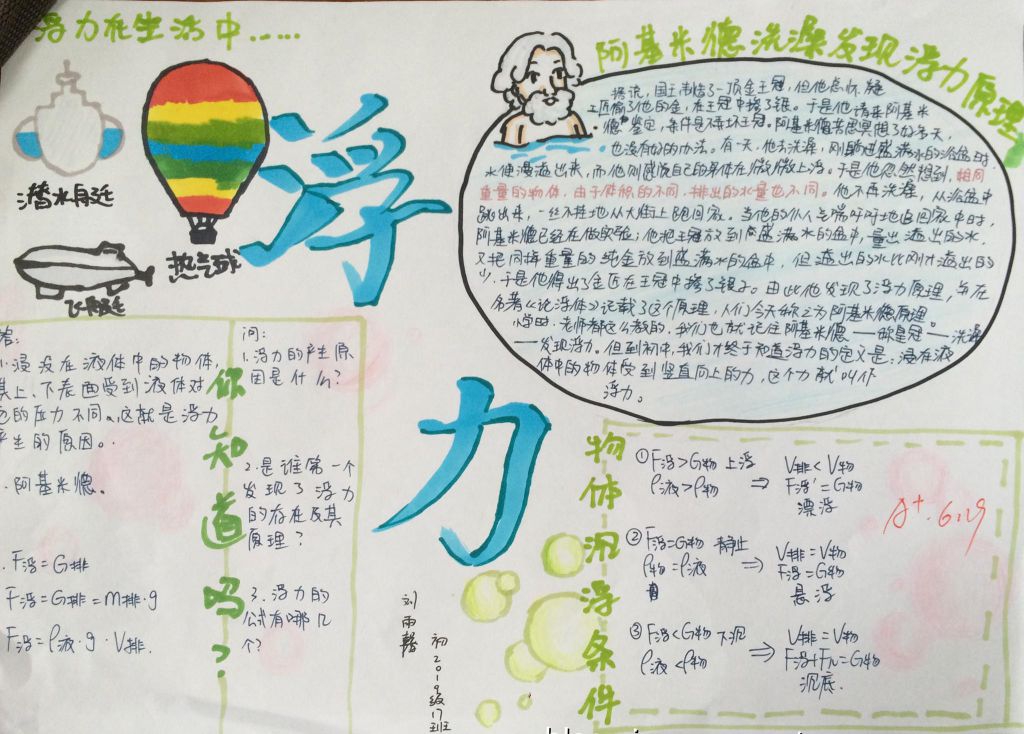 浮力在生活中……
潜水自廷
热气球
飞自廷
浮
力
阿基米德洗澡发现浮力原理
据说，国王制造了一顶金王冠，但他总怀疑
工匠偷了他的金，在王冠中掺了银。于是他请来阿基米
德鉴定，条件是不弄坏王冠。阿基米德苦思冥想了好多天，
也没有好的办法。有一天，他去洗澡，刚躺进盛满水的浴盆时
水便漫溢出来，而他则感觉自己的身体在微微上浮。于是他忽然想到，相同
重量的物体，由于体积的不同，排出的水量也不同。他不再洗澡，从浴盆中
跳出来，一丝不挂地从大街上跑回家。当他的仆人气喘吁吁地追回家中时，
阿基米德已经在做实验；他把王冠放到盛满水的盆中，量出溢出的水，
又把同样重量的纯金放到盛满水的盆中，但溢出的水比刚才溢出的
少，于是他得出了金匠在王冠中掺了银子。由此他发现了浮力原理，并在
名著《论浮体》记载了这个原理，人们今天称之为阿基米德原理。
小学时，老师都这么教的，我们也就记住阿基米德——称皇冠——洗澡
——发现浮力。但到初中，我们才终于知道浮力的定义是：浸在液
体中的物体受到竖直向上的力，这个力就叫作
浮力。
你知道吗？
问：
1.浮力的产生原
因是什么？
2.是谁第一个
发现了浮力
的存在及其
原理？
3.浮力的
公式有哪几
个？
答：
1.浸没在液体中的物体，
其上、下表面受到液体对
它的压力不同。这就是浮力
产生的原因。
.阿基米德。
.F浮=G排
F浮=G排=m排·g
F浮=ρ液·g·V排.
物体沉浮条件
①F浮>G物 上浮 V排<V物
ρ液>ρ物 ⇒ F浮'=G物
漂浮
②F浮=G物 静止 V排=V物
ρ物=ρ液 ⇒ F浮=G物
悬浮
③F浮<G物 下沉 V排=V物
ρ液<ρ物 ⇒ F浮+FN=G物
沉底.
A+. 6.29
初2019级17班